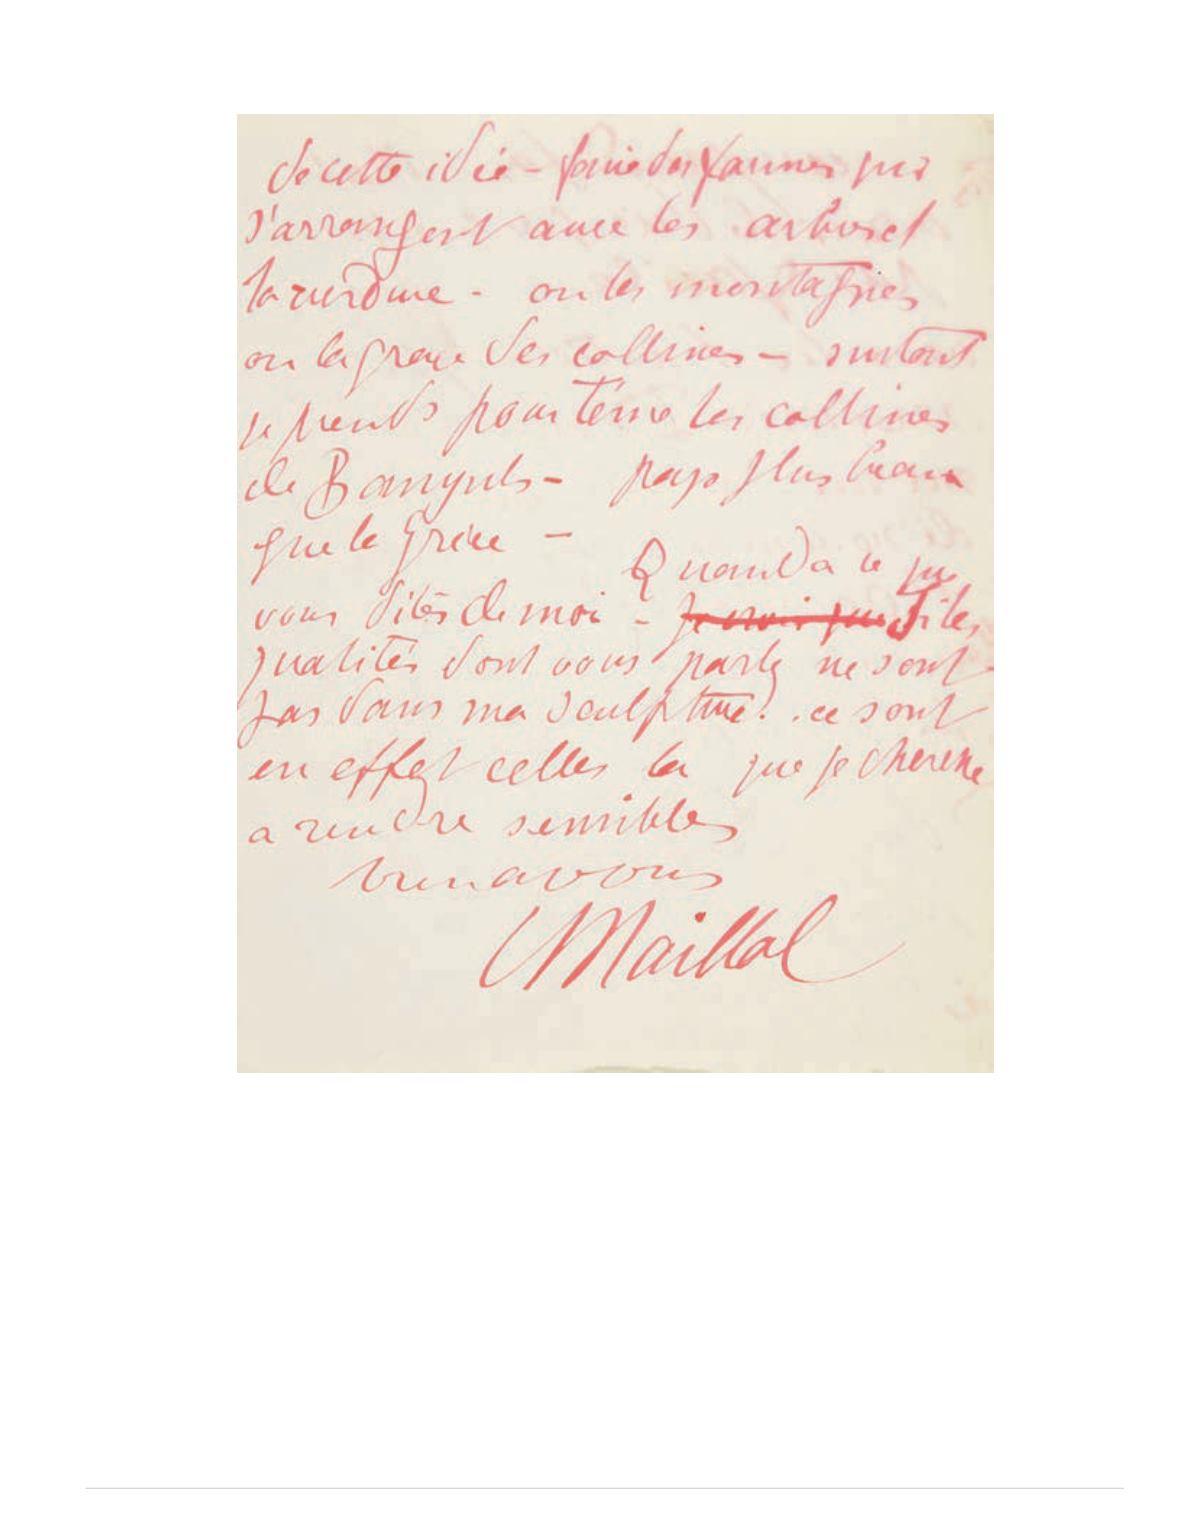 de cette idée - faire des faunes qui
s'arrangent avec les arbres et
la verdure - ou les montagnes
ou la grace des collines - surtout
je prends pour terme les collines
de Banyuls - pays plus beau
que la Grèce -
Quand a ce que
vous dites de moi - Je crois que Si les
qualités dont vous parlez ne sont
pas dans ma sculpture. ce sont
en effet celles la que je cherche
a rendre sensibles
bien a vous
Maillol